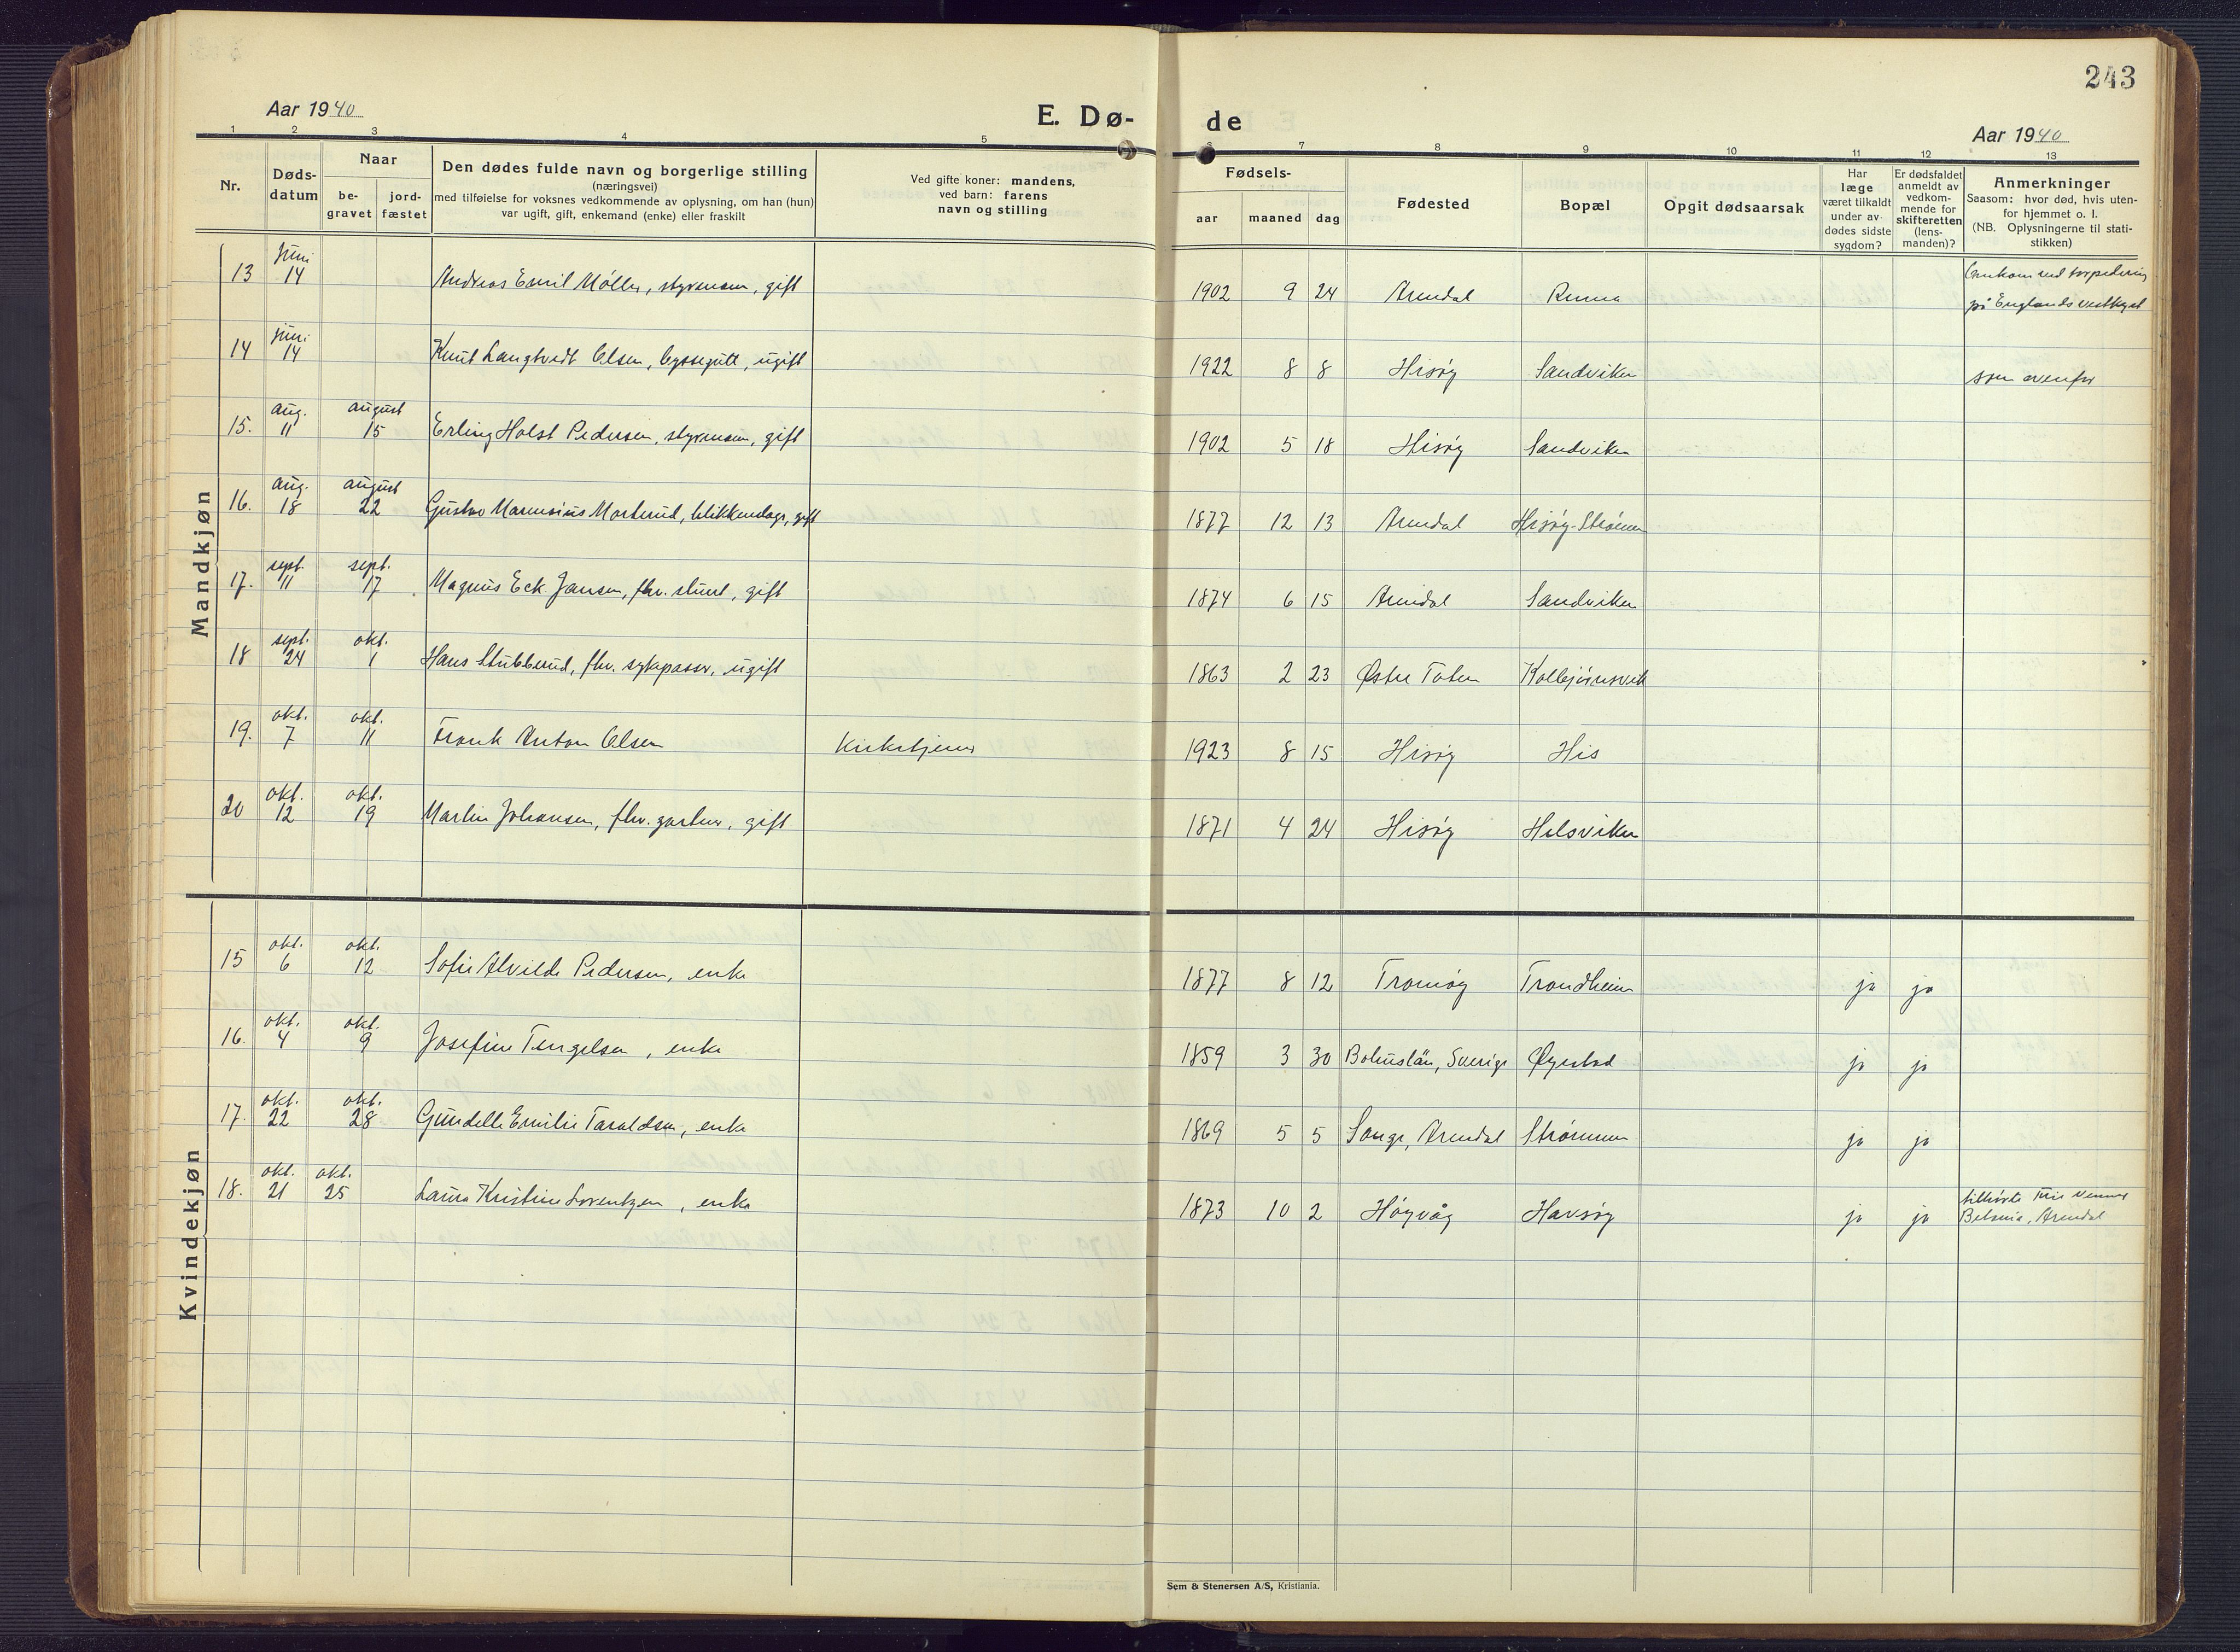 243
Aar 1940
E. Dø-
de
Aar 1940
1 2 3 4 5
6 7 8 9 10 11 12 13
Nr.
Døds-
datum
Naar
be-
gravet
jord-
fæstet
Den dødes fulde navn og borgerlige stilling
(næringsvei)
med tilføielse for voksnes vedkommende av oplysning, om han (hun)
var ugift, gift, enkemand (enke) eller fraskilt
Ved gifte koner: mandens,
ved barn: farens
navn og stilling
Fødsels-
aar maaned dag
Fødested
Bopæl
Opgit dødsaarsak
Har
læge
været tilkaldt
under av-
dødes sidste
sygdom?
Er dødsfaldet
anmeldt av
vedkom-
mende for
skifteretten
(lens-
manden)?
Anmerkninger
Saasom: hvor død, hvis uten-
for hjemmet o. l.
(NB. Oplysningerne til stati-
stikken)
Mandkjøn
13 juni 14 Andreas Emil Møller, styrmann, gift 1902 9 24 Arendal
Omkom ved torpedering
på Englands vestkyst
14 juni 14 Knut Langtvedt Olsen, byssegutt, ugift 1922 8 8 Hisøy Sandviken som ovenfor
15. aug. 11 august 15 Erling Holst Pedersen, styrmann, gift 1902 5 18 Hisøy Sandviken
16. aug. 18 august 22 Gustav Marensius Morterud, blikkenslager, gift 1877 12 13 Arendal Hisøy-Strømm
17. sept. 11 sept. 17 Magnus Eck Jansen, fhv. stuert, gift 1874 6 15 Arendal Sandviken
18 sept. 24 okt. 1 Hans Stubberud, fhv. sykepasser, ugift 1863 2 23 Østre Toten Kolbjørnsvik
19. okt. 7 okt. 11 Frank Anton Olsen Kirketjener 1923 8 15 Hisøy His
20 okt. 12 okt. 19 Martin Johansen, fhv. gartner, gift 1871 4 24 Hisøy Helsviken
Kvindekjøn
15 okt. 6 okt. 12 Sofie Alvilde Pedersen, enke 1877 8 12 Tromøy Trondheim ja ja
16. okt. 4 okt. 9 Josefine Tengelsen, enke 1859 3 30 Bohuslän, Sverige Øyestad ja ja
17. okt. 22 okt. 28 Gundelle Emilie Taraldsen, enke 1869 5 5 Songe, Arendal Strømmen ja ja
18. okt. 21 okt. 25 Laura Kristine Lorentzen, enke 1873 10 2 Høyvåg Havsøy ja ja
tilhørte Frie Venner
Betania, Arendal
Sem & Stenersen A/S, Kristiania.